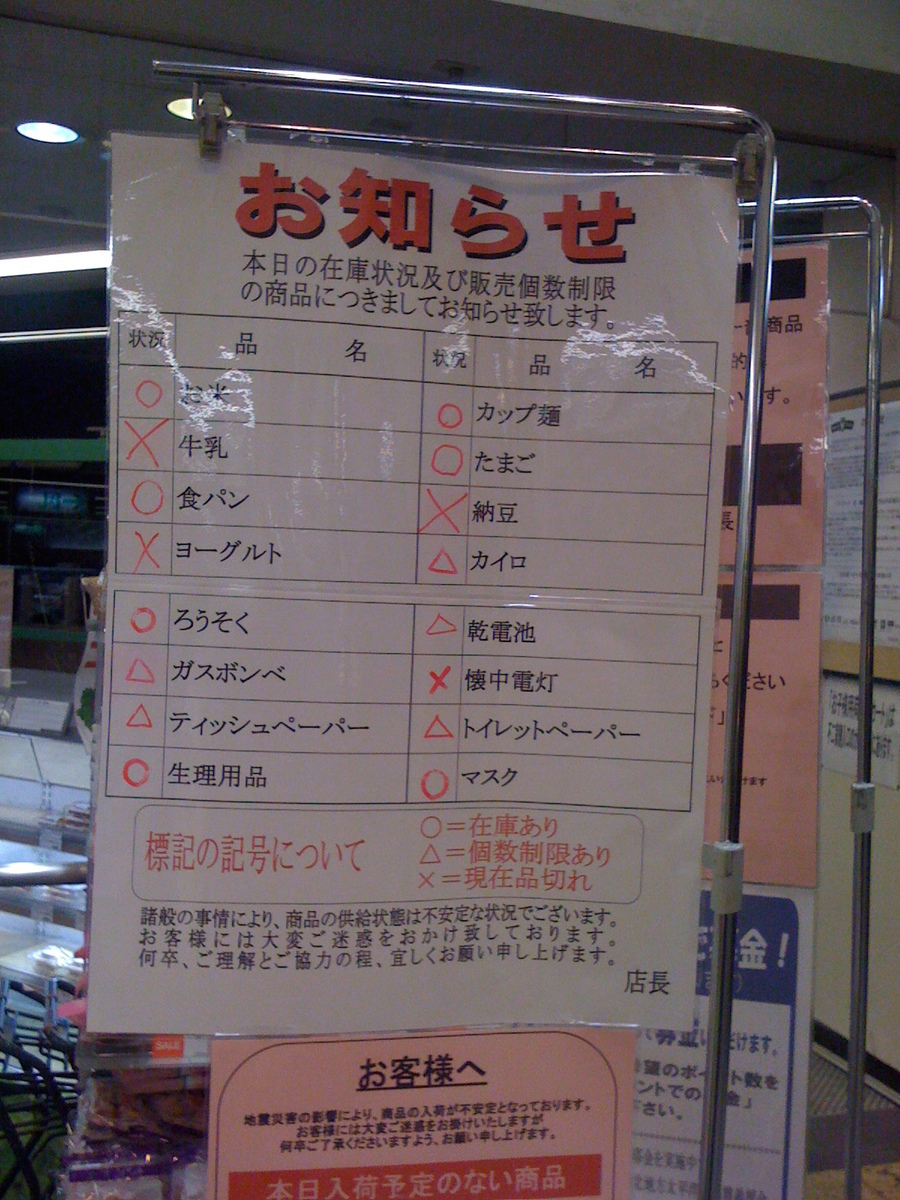 お知らせ
本日の在庫状況及び販売個数制限
の商品につきましてお知らせ致します。
状況 品 名 状況 品 名
○ お米 ○ カップ麺
× 牛乳 ○ たまご
○ 食パン × 納豆
× ヨーグルト △ カイロ
○ ろうそく △ 乾電池
△ ガスボンベ × 懐中電灯
△ ティッシュペーパー △ トイレットペーパー
○ 生理用品 ○ マスク
標記の記号について
○=在庫あり
△=個数制限あり
×=現在品切れ
諸般の事情により、商品の供給状態は不安定な状況でございます。
お客様には大変ご迷惑をおかけ致しております。
何卒、ご理解とご協力の程、宜しくお願い申し上げます。
店長
SALE
お客様へ
地震災害の影響により、商品の入荷が不安定となっております。
お客様には大変ご迷惑をお掛けいたしますが
何卒ご了承くださいますよう、お願い申し上げます。
本日入荷予定のない商品
商品
的
います。
長
ください
金!
募金
だけます。
のポイント数を
ントでの
金」
さい。